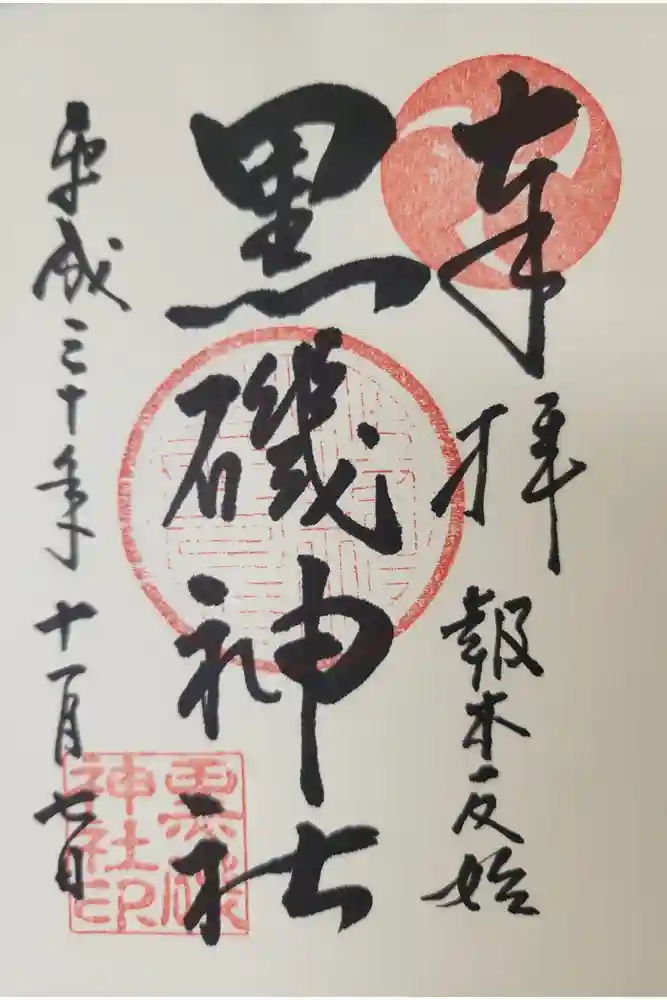 奉拝
報本反始
黒磯神社
平成三十年十一月七日
黒磯神社印